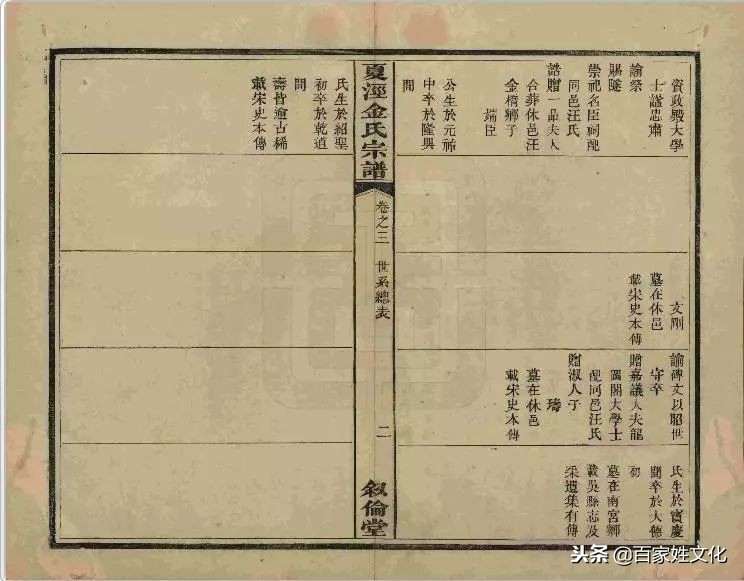 資政殿大學
士謚忠肅
諭祭
賜䃍
崇祀名臣祠配
同邑汪氏
誥贈一品夫人
合葬休邑汪
金橋鄉子
端臣
公生於元祐
中卒於隆興
間
文剛
墓在休邑
載宋史本傳
諭碑文以昭世
守卒
贈嘉議大夫龍
圖閣大學士
配同邑汪氏
贈淑人子
璹
墓在休邑
載宋史本傳
氏生於寶慶
間卒於大德
初
墓在南宮鄉
載吳縣志及
桼遺集有傳
夏涇金氏宗譜
卷之三
世系總表
二
敘倫堂
氏生於紹聖
初卒於乾道
間
壽皆逾古稀
載宋史本傳
头条 @百家姓文化